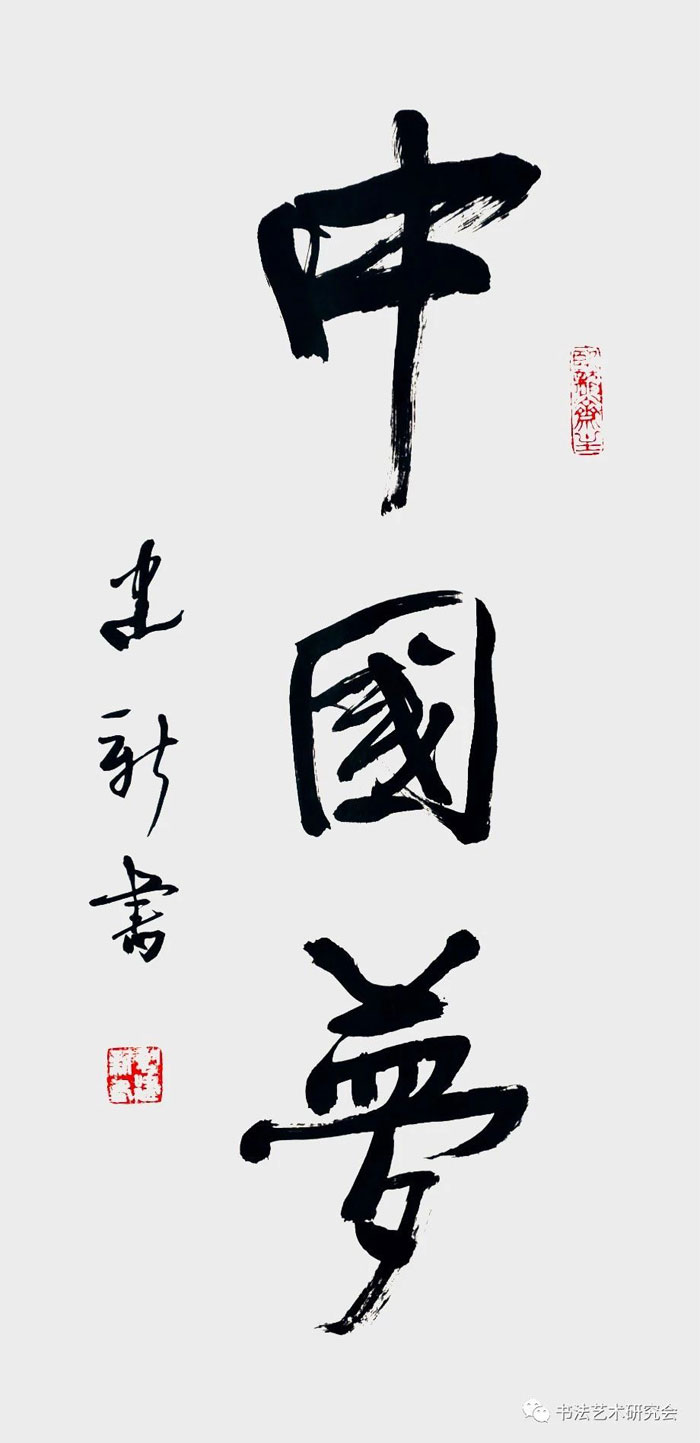 中國夢
建新書
书法艺术研究会